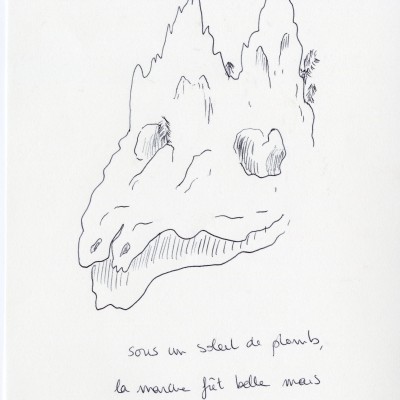 sous un soleil de plomb,
la marche fût belle mais